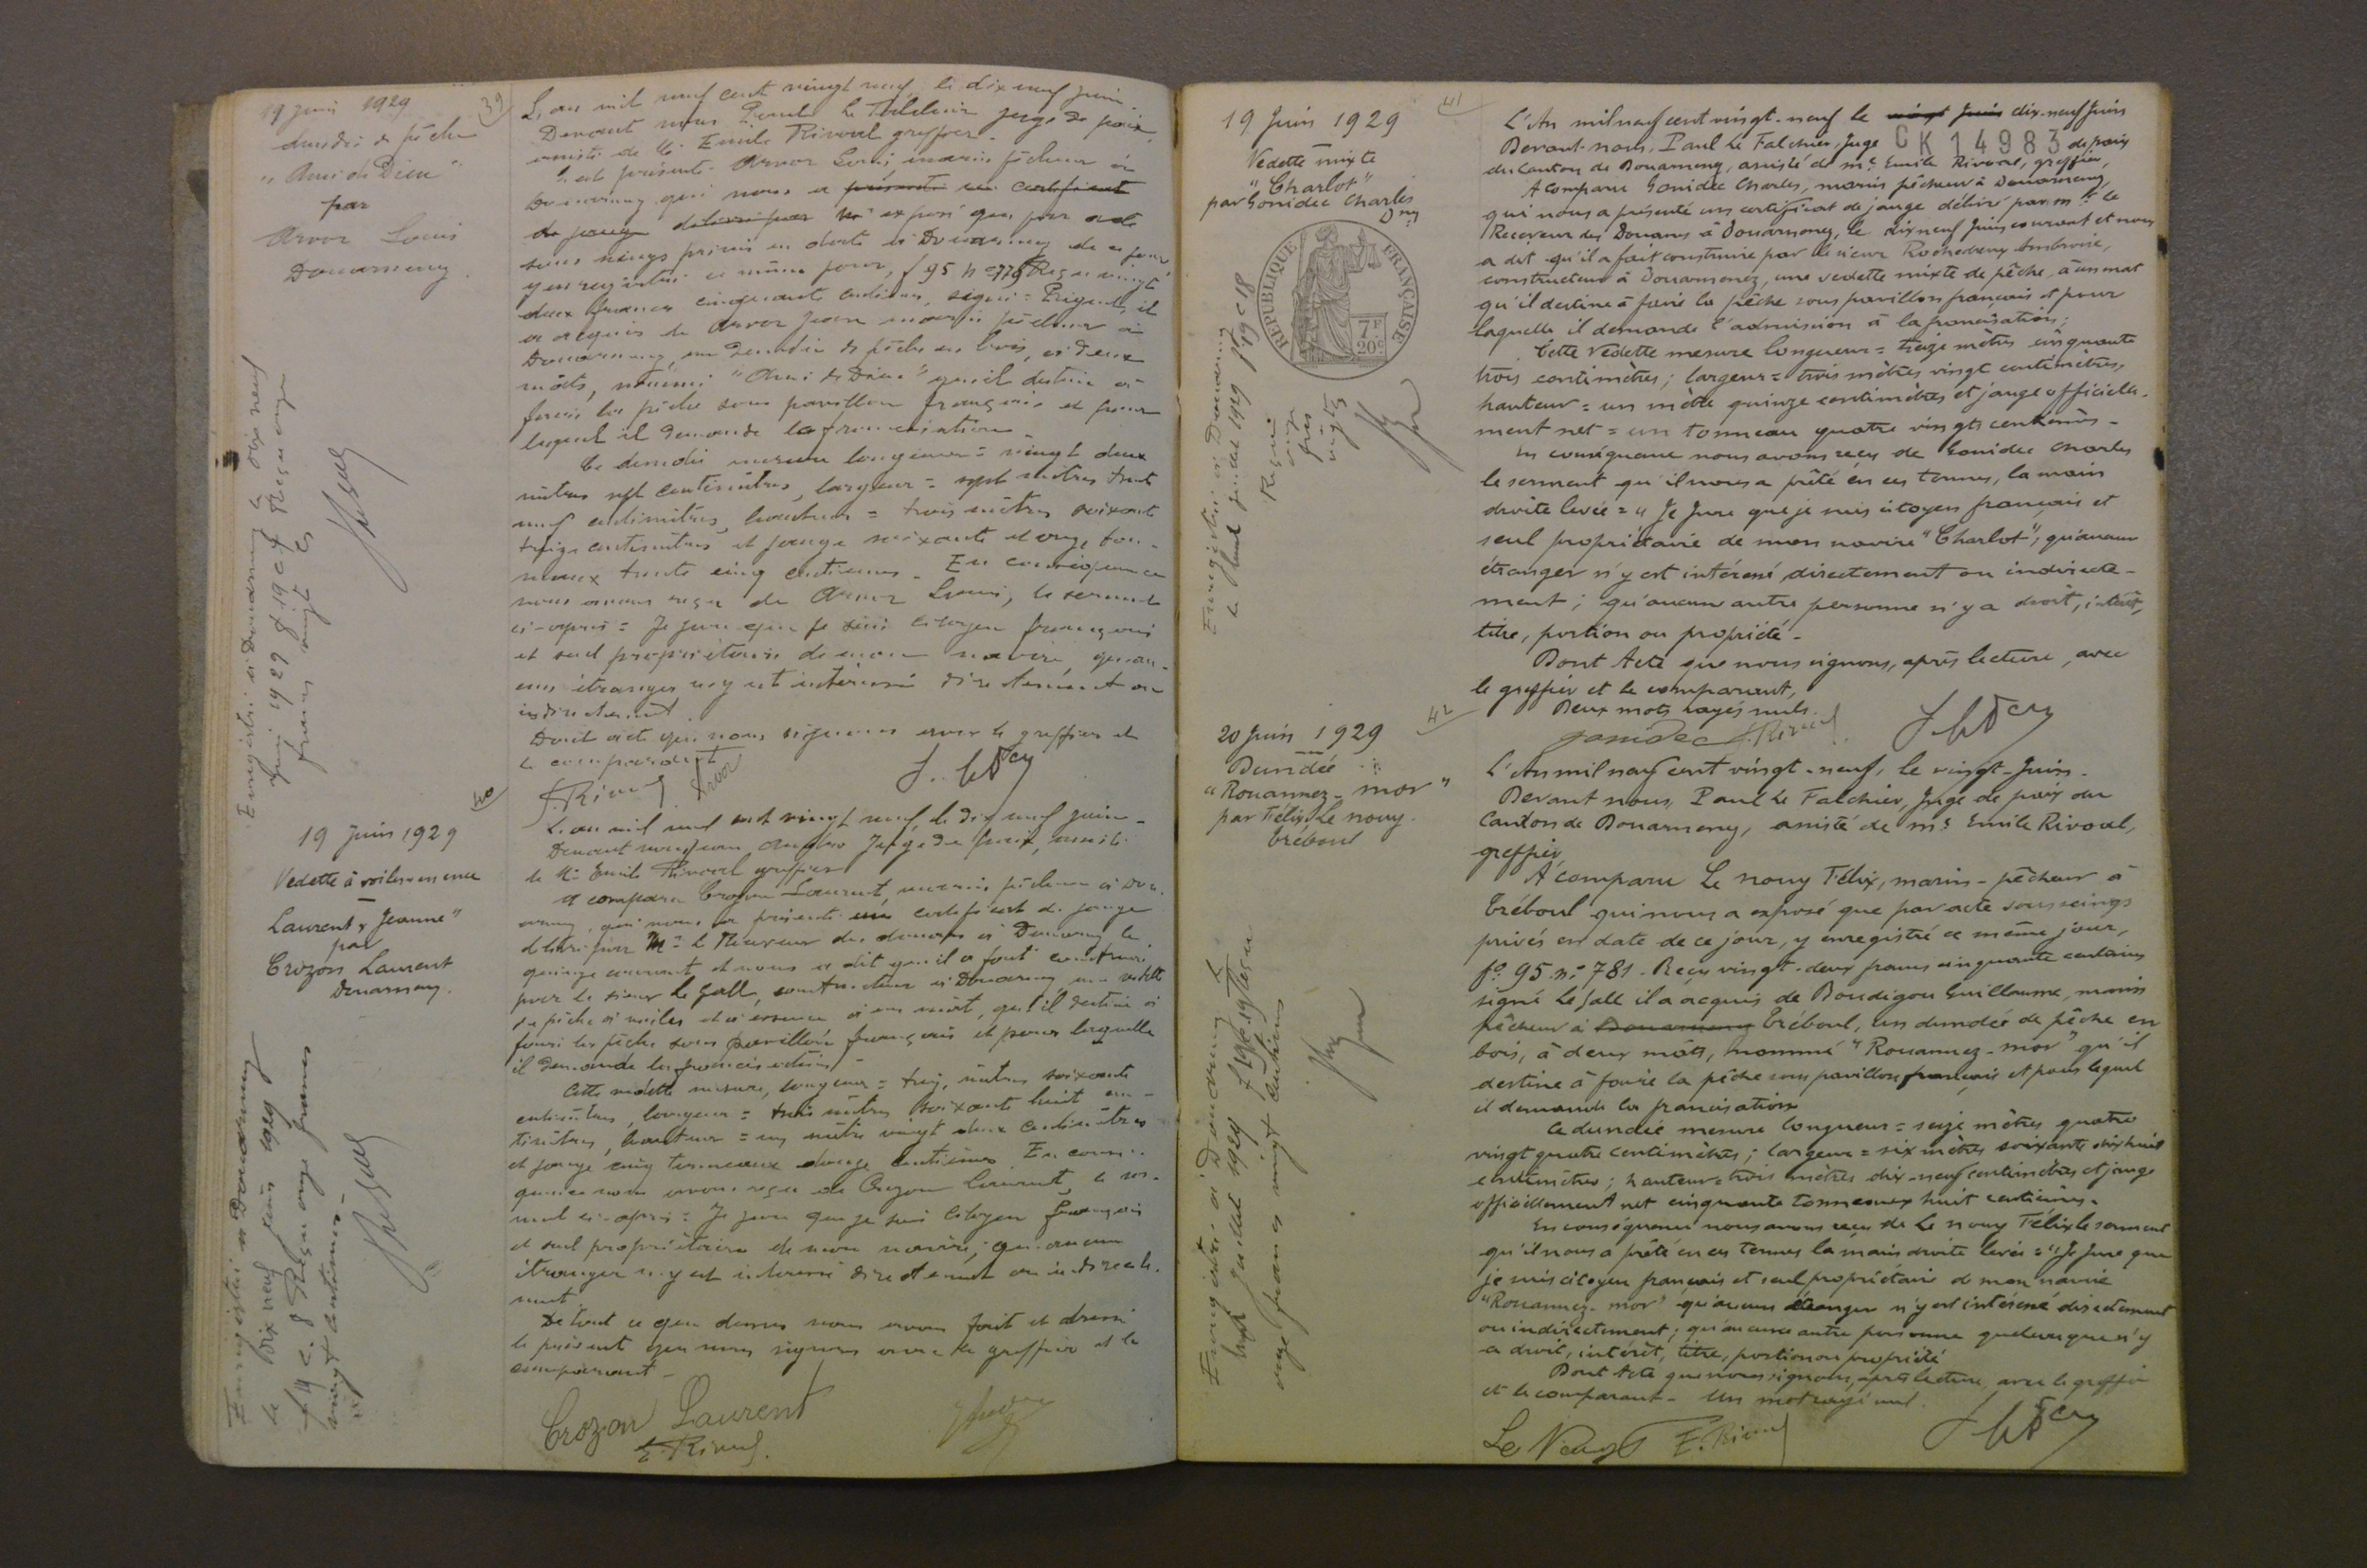 19 Juin 1929
dundée de pêche
"Ami de Dieu"
par
Arvor Louis
Douarnenez
39
L'an mil neuf cent vingt neuf, le dix neuf juin.
Devant nous Paul Le Falchier juge de paix,
assisté de Me Emile Rivoal greffier.
S'est présenté Arvor Louis, marin pêcheur à
Douarnenez qui nous a présenté un certificat
de jauge délivré par exposé que par acte
sous seings privés en date à Douarnenez de ce jour
y enregistré ce même jour, f 95 n° 776 Reçu vingt
deux francs cinquante centimes, signé = Prigent, il
a acquis de Arvor Jean marin pêcheur à
Douarnenez, un dundée de pêche en bois, à deux
mâts, nommé "Ami de Dieu" qu'il destine à
faire la pêche sous pavillon français et pour
lequel il demande la francisation.
Ce dundée mesure longueur = vingt deux
mètres sept centimètres, largeur = sept mètres trente
neuf centimètres, hauteur = trois mètres soixante
treize centimètres et jauge soixante et onze ton-
neaux trente cinq centièmes. En conséquence
nous avons reçu de Arvor Louis, le serment
ci-après = Je jure que je suis citoyen français
et seul propriétaire de mon navire, qu'au-
cun étranger n'y est intéressé directement ou
indirectement.
Dont acte que nous signons avec le greffier et
le comparant
E. Rivoal Arvor
Enregistré à Douarnenez le dix neuf
Juin 1929 f 19 c 7 Reçu onze
francs vingt c
40
19 Juin 1929
Vedette à voiles et essence
Laurent "Jeanne"
par
Crozon Laurent
Douarnenez.
L'an mil neuf cent vingt neuf, le dix neuf juin.
Devant nous Juge de paix, assisté
de Me Emile Rivoal greffier
A comparu Crozon Laurent, marin pêcheur à Dou-
arnenez, qui nous a présenté un certificat de jauge
délivré par Mr le Receveur des douanes à Douarnenez le
quinze courant et nous a dit qu'il a fait construire
par le sieur Le Gall, constructeur à Douarnenez, une vedette
de pêche à voiles et à essence à un mât, qu'il destine à
faire la pêche sous pavillon français et pour laquelle
il demande la francisation.
Cette vedette mesure, longueur = treize mètres soixante
centimètres, largeur = trois mètres soixante huit cen-
timètres, hauteur = un mètre vingt deux centimètres
et jauge cinq tonneaux douze centièmes. En consé-
quence nous avons reçu de Crozon Laurent, le ser-
ment ci-après = Je jure que je suis citoyen français
et seul propriétaire de mon navire; qu'aucun
étranger n'y est intéressé directement ou indirecte-
ment.
De tout ce que dessus nous avons fait et dressé
le présent que nous signons avec le greffier et le
comparant -
Crozon Laurent
E. Rivoal.
Enregistré à Douarnenez
le dix neuf juin 1929
f 19 c. 8 Reçu onze francs
vingt centimes.
41
19 Juin 1929
Vedette mixte
"Charlot"
par Gonidec Charles
Dnez
REPUBLIQUE FRANÇAISE
7F 20c
Enregistré à Douarnenez
1929 f° 19 c 18
Reçu
onze
frcs
vingt cs
L'An mil neuf cent vingt-neuf le vingt Juin dix-neuf Juin
Devant nous, Paul Le Falchier, Juge CK 14983 de paix
du Canton de Douarnenez, assisté de me Emile Rivoal, greffier,
A Comparu Gonidec Charles, marin pêcheur à Douarnenez,
qui nous a présenté un certificat de jauge délivré par mr le
Receveur des Douanes à Douarnenez, le dix neuf Juin courant et nous
a dit qu'il a fait construire par le sieur Rochedreux Ambroise,
constructeur à Douarnenez, une vedette mixte de pêche, à un mat
qu'il destine à faire la pêche sous pavillon français et pour
laquelle il demande l'admission à la francisation;
Cette vedette mesure longueur = treize mètres cinquante
trois centimètres; largeur = trois mètres vingt centimètres,
hauteur = un mètre quinze centimètres et jauge officielle-
ment net = un tonneau quatre vingts centièmes -
En conséquence nous avons reçu de Gonidec Charles
le serment qu'il nous a prêté en ces termes, la main
droite levée = "Je Jure que je suis citoyen français et
seul propriétaire de mon navire "Charlot", qu'aucun
étranger n'y est intéressé directement ou indirecte-
ment; qu'aucune autre personne n'y a droit, intérêt,
titre, portion ou propriété -
Dont Acte que nous signons, après lecture, avec
le greffier et le comparant,
Deux mots rayés nuls.
gonidec E. Rivoal
42
20 Juin 1929
Dundée
"Rouannez-mor"
par Félix Le nouy
Tréboul
Enregistré à Douarnenez le
Juillet 1929 f 19 Reçu
onze francs vingt centimes
L'An mil neuf cent vingt-neuf, le vingt-Juin.
Devant nous, Paul Le Falchier, Juge de paix du
Canton de Douarnenez, assisté de me Emile Rivoal,
greffier
A comparu Le nouy Félix, marin-pêcheur à
Tréboul qui nous a exposé que par acte sous seings
privés en date de ce jour, y enregistré ce même jour,
f° 95 n° 781 - Reçu vingt-deux francs cinquante centimes
signé Le Gall il a acquis de Boudigou Guillaume, marin
pêcheur à Douarnenez Tréboul, un dundée de pêche en
bois, à deux mâts, nommé "Rouannez-mor" qu'il
destine à faire la pêche sous pavillon français et pour lequel
il demande la francisation
Ce dundée mesure longueur = seize mètres quatre
vingt quatre centimètres; largeur = six mètres soixante dix huit
centimètres; hauteur = trois mètres dix-neuf centimètres et jauge
officiellement net cinquante tonneaux huit centièmes.
En conséquence nous avons reçu de Le nouy Félix le serment
qu'il nous a prêté en ces termes la main droite levée = "Je Jure que
je suis citoyen français et seul propriétaire de mon navire
"Rouannez-mor" qu'aucun étranger n'y est intéressé directement
ou indirectement; qu'aucune autre personne quelconque n'y
a droit, intérêt, titre, portion ou propriété
Dont Acte que nous signons, après lecture, avec le greffier
et le comparant - Un mot rayé nul.
Le Nouy F E. Rivoal